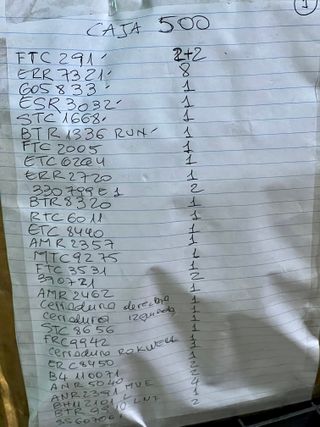 1
CAJA 500
FTC 291 2+2
ERR 7321 8
605833 1
ESR 3032 1
STC 1668 1
BTR 1336 RUN 1
FTC 2005 1
ETC 6264 1
ERR 2720 1
330799E1 2
BTR 8320 1
RTC 6011 1
ETC 8440 1
AMR 2357 1
MTC 9275 1
FTC 3531 1
390721 2
AMR 2462 1
Cerradura derecha 1
Cerradura izquierda 1
STC 8656 1
FRC 9942 1
Cerradura ROKWELL 1
ERC 8450
B4 110071
AMR 5040
ANR 2391 MUE
BTR